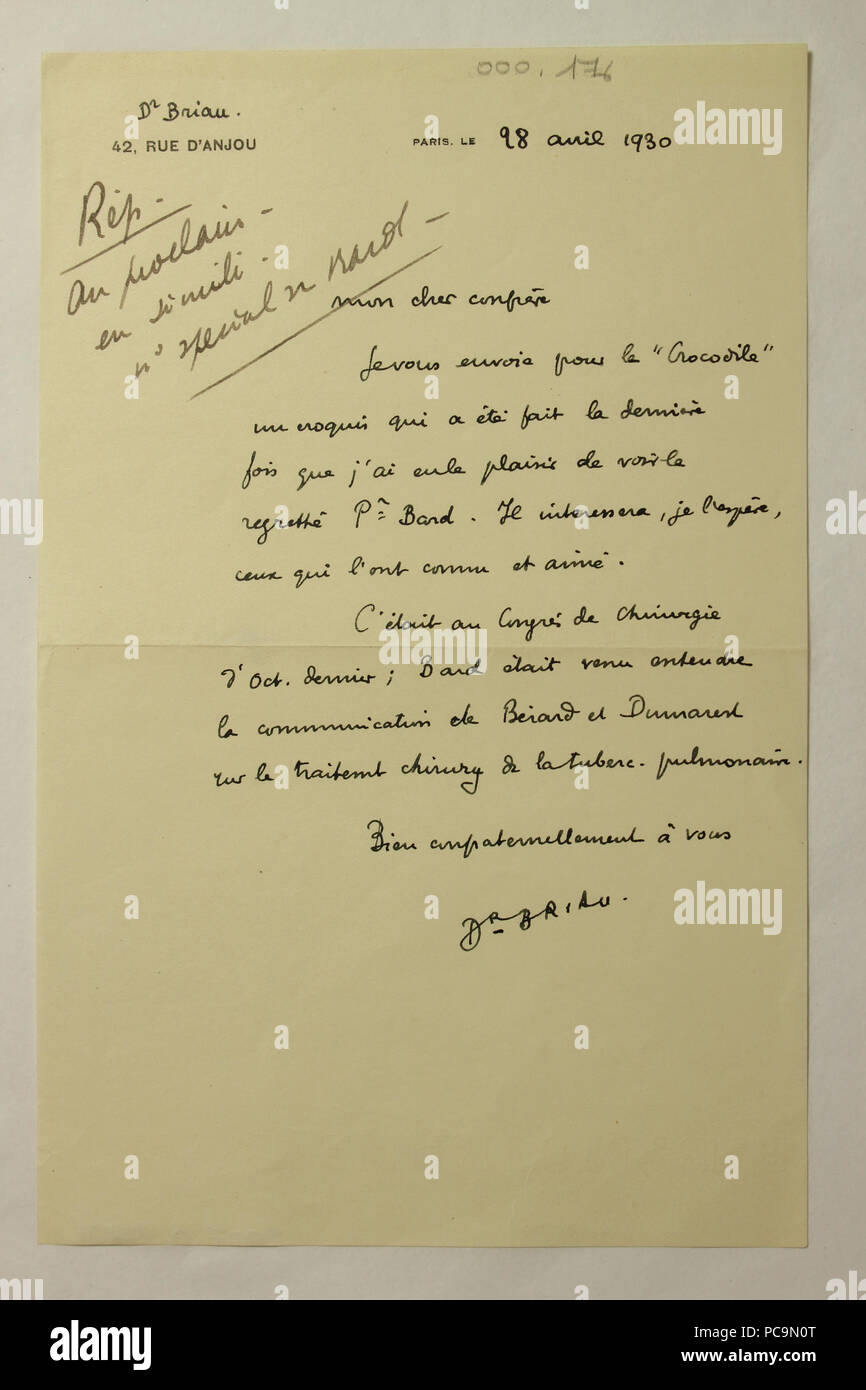 000.176
Dr Briau.
42, RUE D'ANJOU
PARIS. LE 28 avril 1930
Rép.
au prochain
en simili.
n° spécial sr Bard
mon cher confrère
Je vous envoie pour le "Crocodile"
un croquis qui a été fait la dernière
fois que j'ai eu le plaisir de voir le
regretté Pr Bard. Il interessera, je l'espère,
ceux qui l'ont connu et aimé.
C'était au Congrès de chirurgie
d'Oct. dernier; Bard était venu entendre
la communication de Bérard et Dumarest
sur le traitemt chirurg de la tuberc. pulmonaire.
Bien confraternellement à vous
Dr BRIAU.
alamy
Image ID: PC9N0T
www.alamy.com